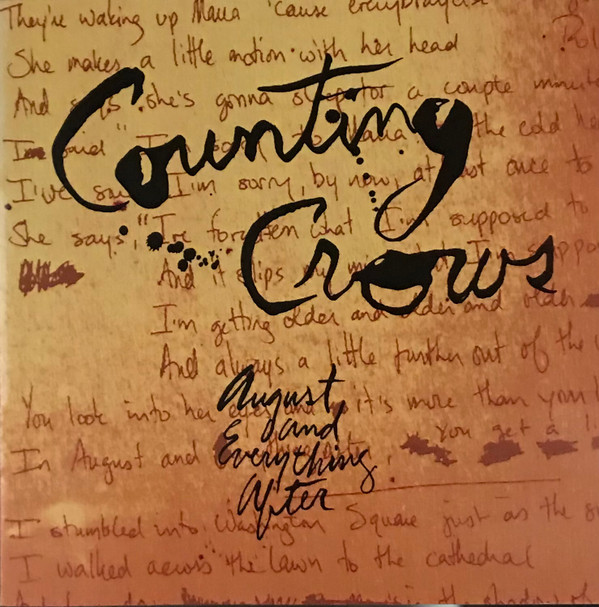 They're waking up Maria 'cause everybody else
She makes a little motion with her head
And says she's gonna sleep for a couple minutes
I'm said "I'm sorry" to Maria the cold
I've I'm sorry, by now, at once to
She says, "I've forgotten what I'm supposed to
And it slips my I'm
I'm getting older and older and older
And always a little further out of the
You look into her eyes and it's more than your
You get a
In August and Everything After,
I stumbled into Washington Square just as the
I walked across the lawn to the cathedral
in the shadow of
Counting
Crows
August
and
Everything
After